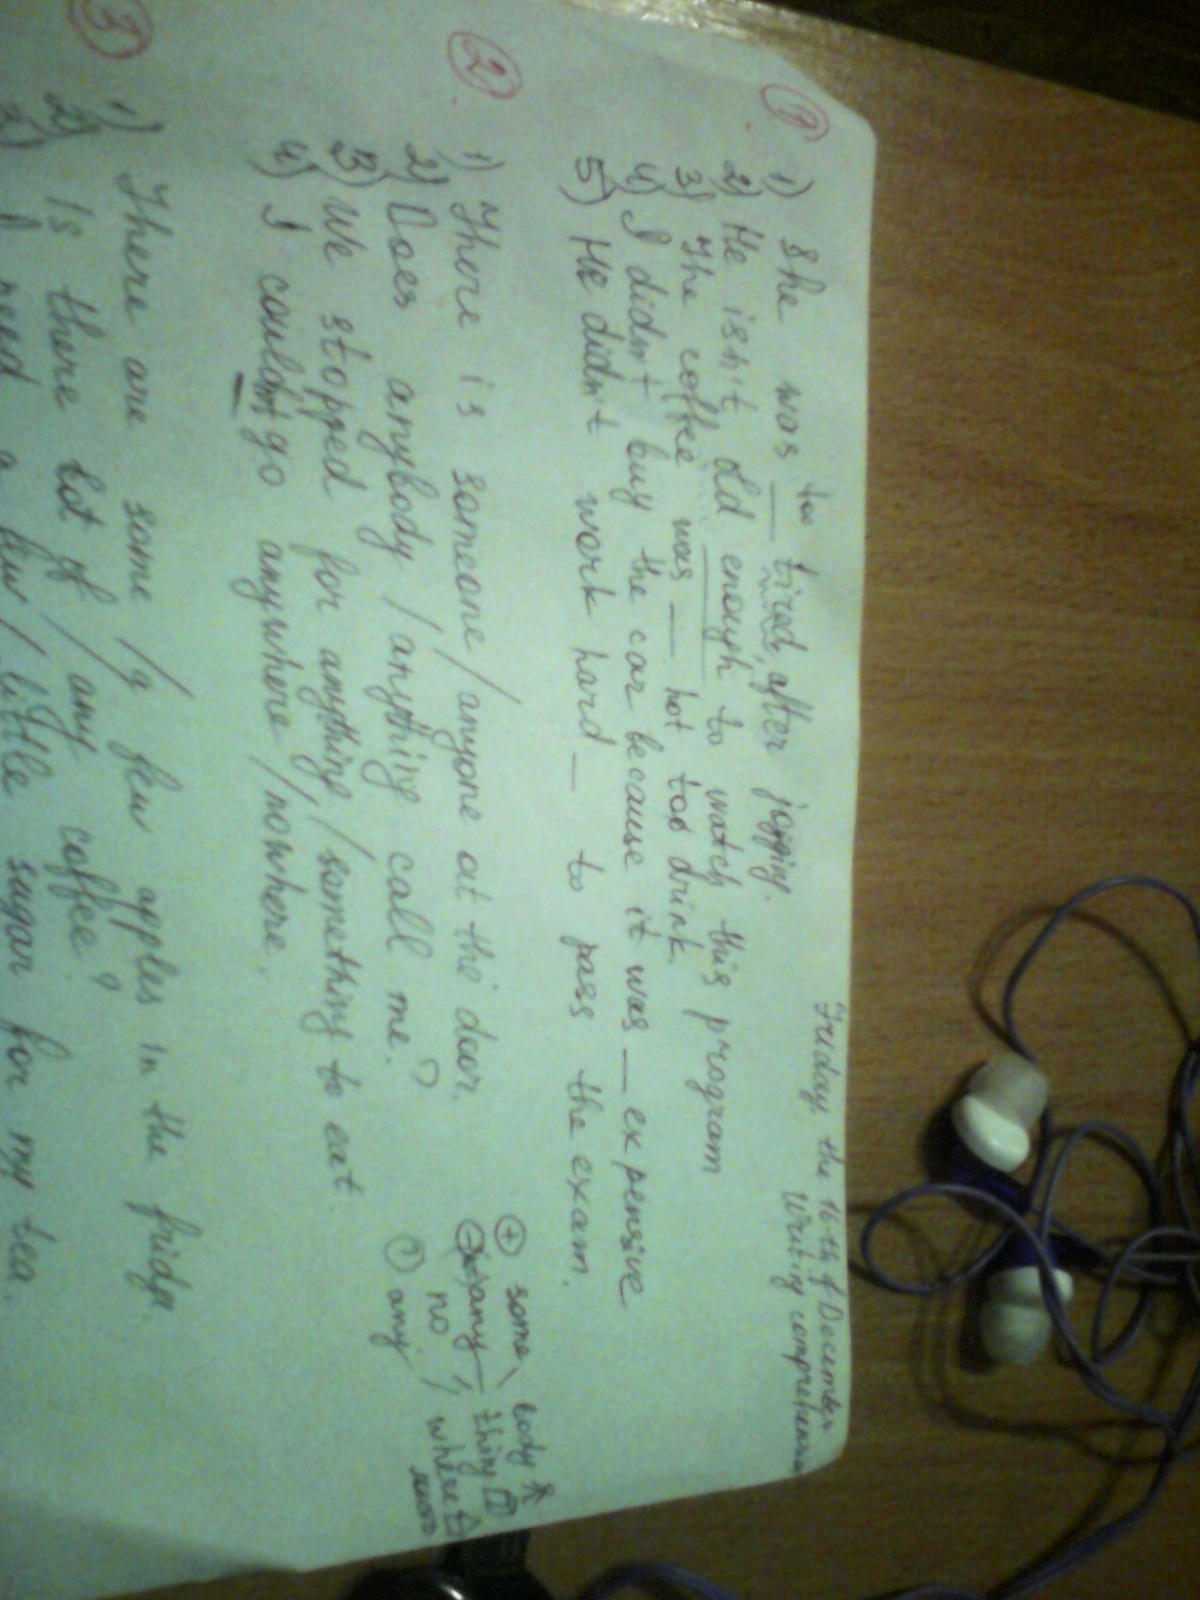 Friday, the 16-th of December
Writing comprehension
1
1) She was too tired after jogging.
2) He isn't old enough to watch this program
3) The coffee was __ hot too drink.
4) I didn't buy the car because it was __ expensive
5) He didn't work hard __ to pass the exam.
2
1) There is someone / anyone at the door.
2) Does anybody / anything call me?
3) We stopped for anything / something to eat
4) I couldnt go anywhere / nowhere.
+ some body
any thing
no where
? any
3
1) There are some / a few apples in the fridge.
2) Is there lot of / any coffee?
3) I need a few / little sugar for my tea.